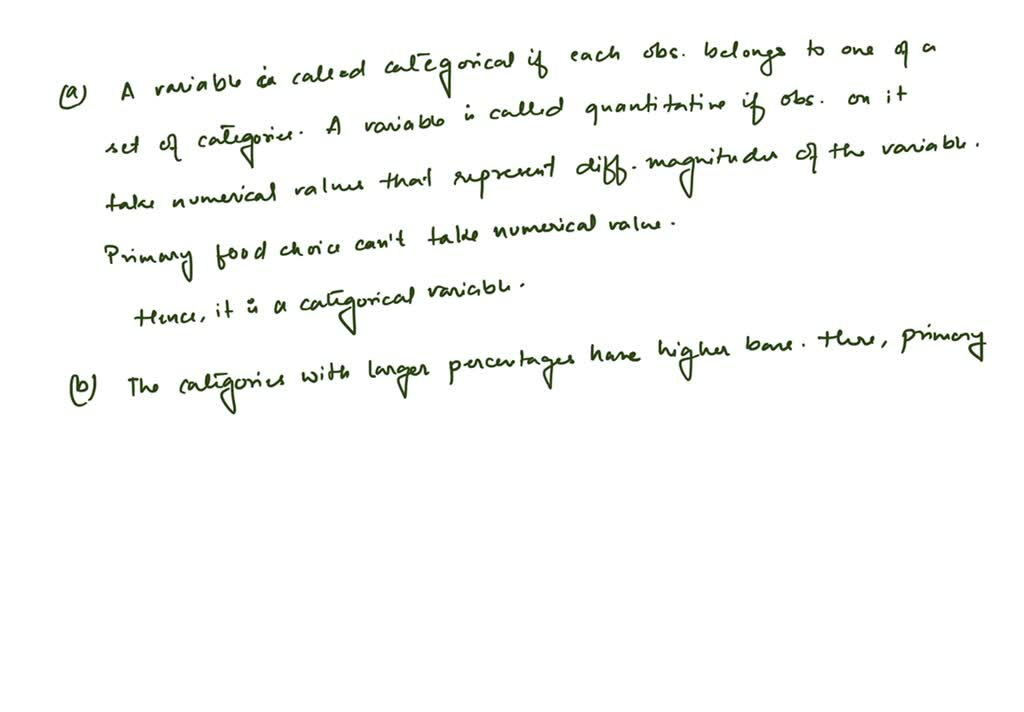 (a) A variable is called categorical if each obs. belongs to one of a
set of categories. A variable is called quantitative if obs. on it
take numerical values that represent diff. magnitudes of the variable.
Primary food choice can't take numerical value.
Hence, it is a categorical variable.
(b) The categories with larger percentages have higher bars. Here, primary